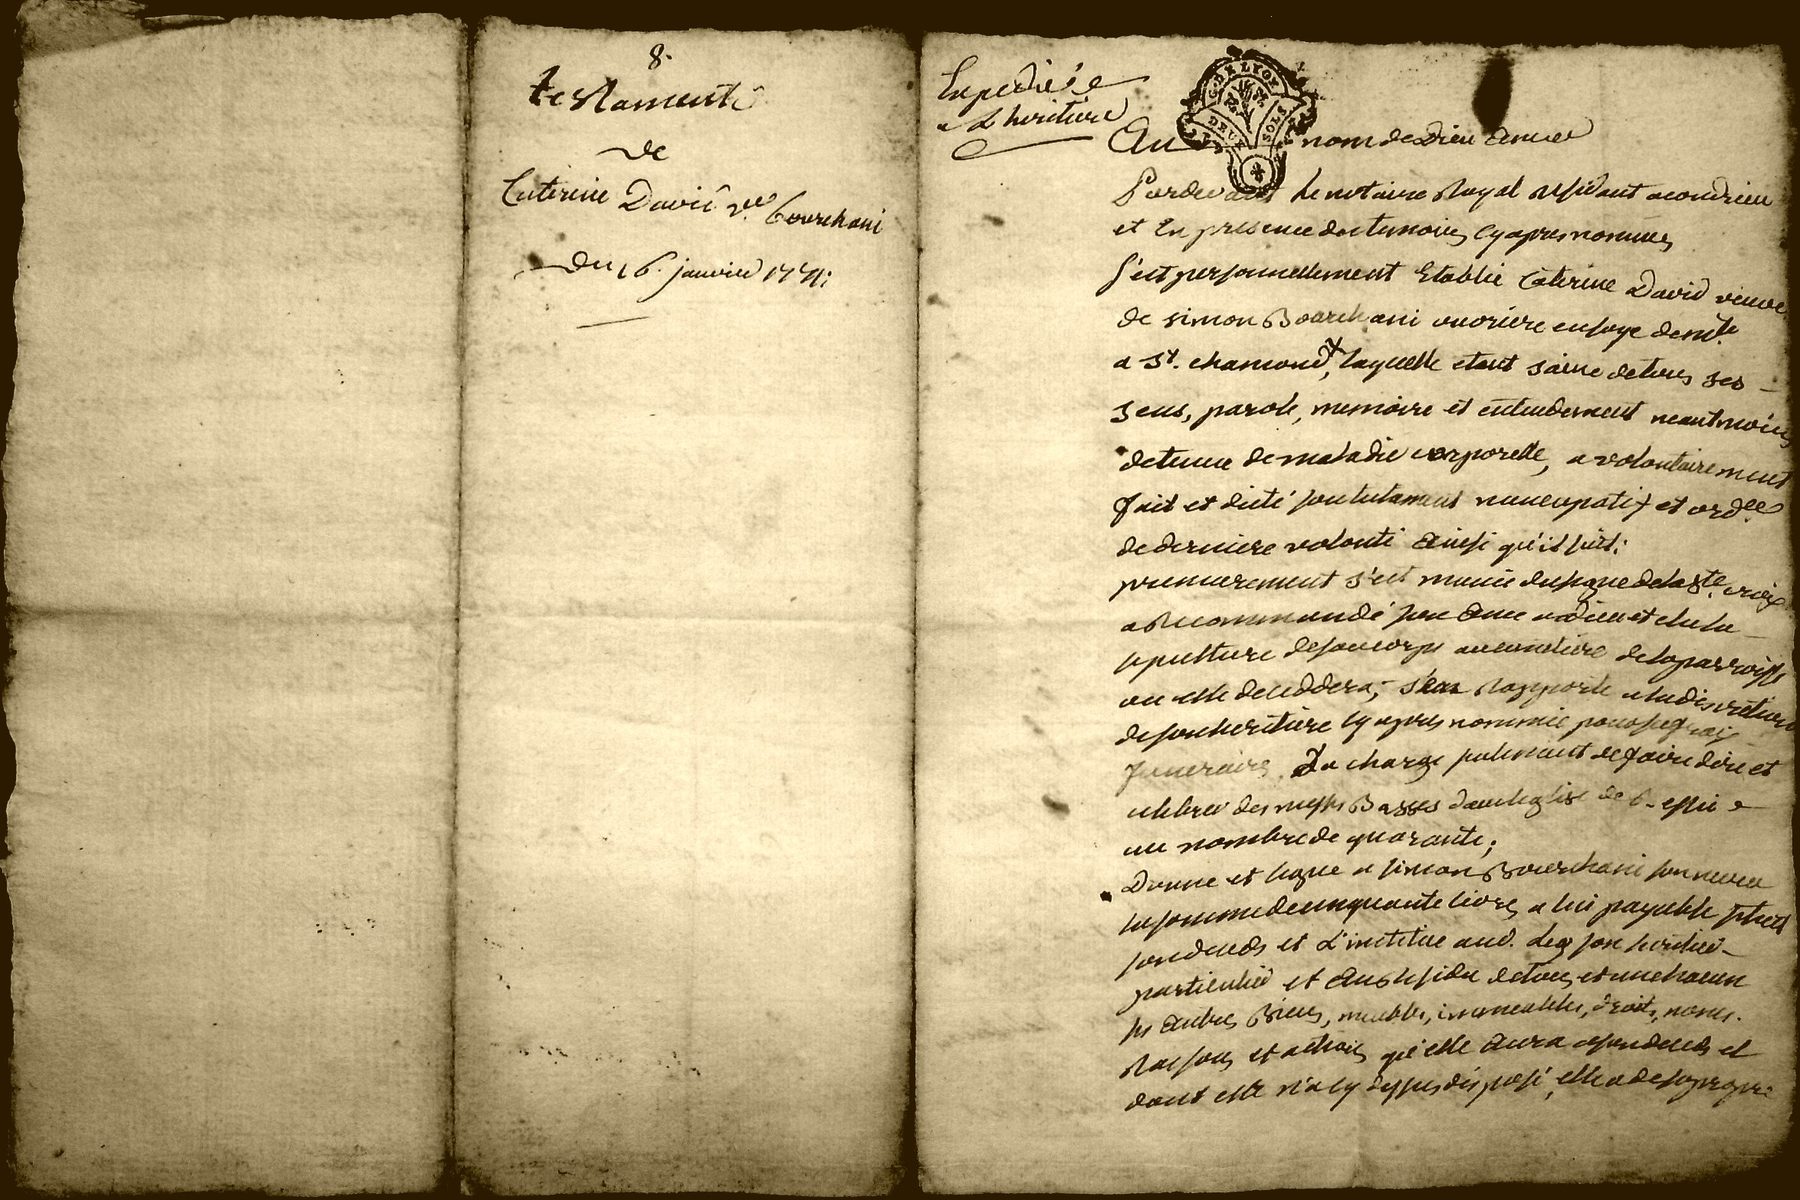 8.
testament
de
Caterine David v.ve Bourchani
du 16. janvier 1771;
Expedié
a L'heritiere
G. DE LYON
DEUX SOLS
Au nom de Dieu amen
Pardevant Le notaire Royal residant a condrieu
et En presence des temoins cy apres nommés
s'est personnellement Etablie Caterine David veuve
de simon Bourchani ouvriere en soye dem.te
a St. chamond, laquelle etant saine de tous ses
sens, parole, memoire et entendement neantmoins
detenue de maladie corporelle, a volontairement
fait et dicté son testament nuncupatif et ord.ce
de derniere volonté ainsi qu'il suit;
premierement s'est munie du signe de la Ste. croix
a Recommandé son ame a dieu et elu la
sepulture de son corps au cimetiere de la parroisse
ou elle deceddera, s'en Rapporte a la discretion
de son heritiere cy apres nommée pour ses frais
funeraires, La charge seulement de faire dire et
celebrer des messes Basses dans leglise de
au nombre de quarante;
Donne et legue a simon Bourchani son neveu
la somme de cinquante livres a lui payable
son deceds et L'institue aud. Leg son heritier
particulier et au Residu de tous et un chacun
ses autres Biens, meubles, immeubles, droits, noms.
Raisons et actions qu'elle aura a son deceds et
dont elle n'a cy dessus disposé, elle a de sa propre